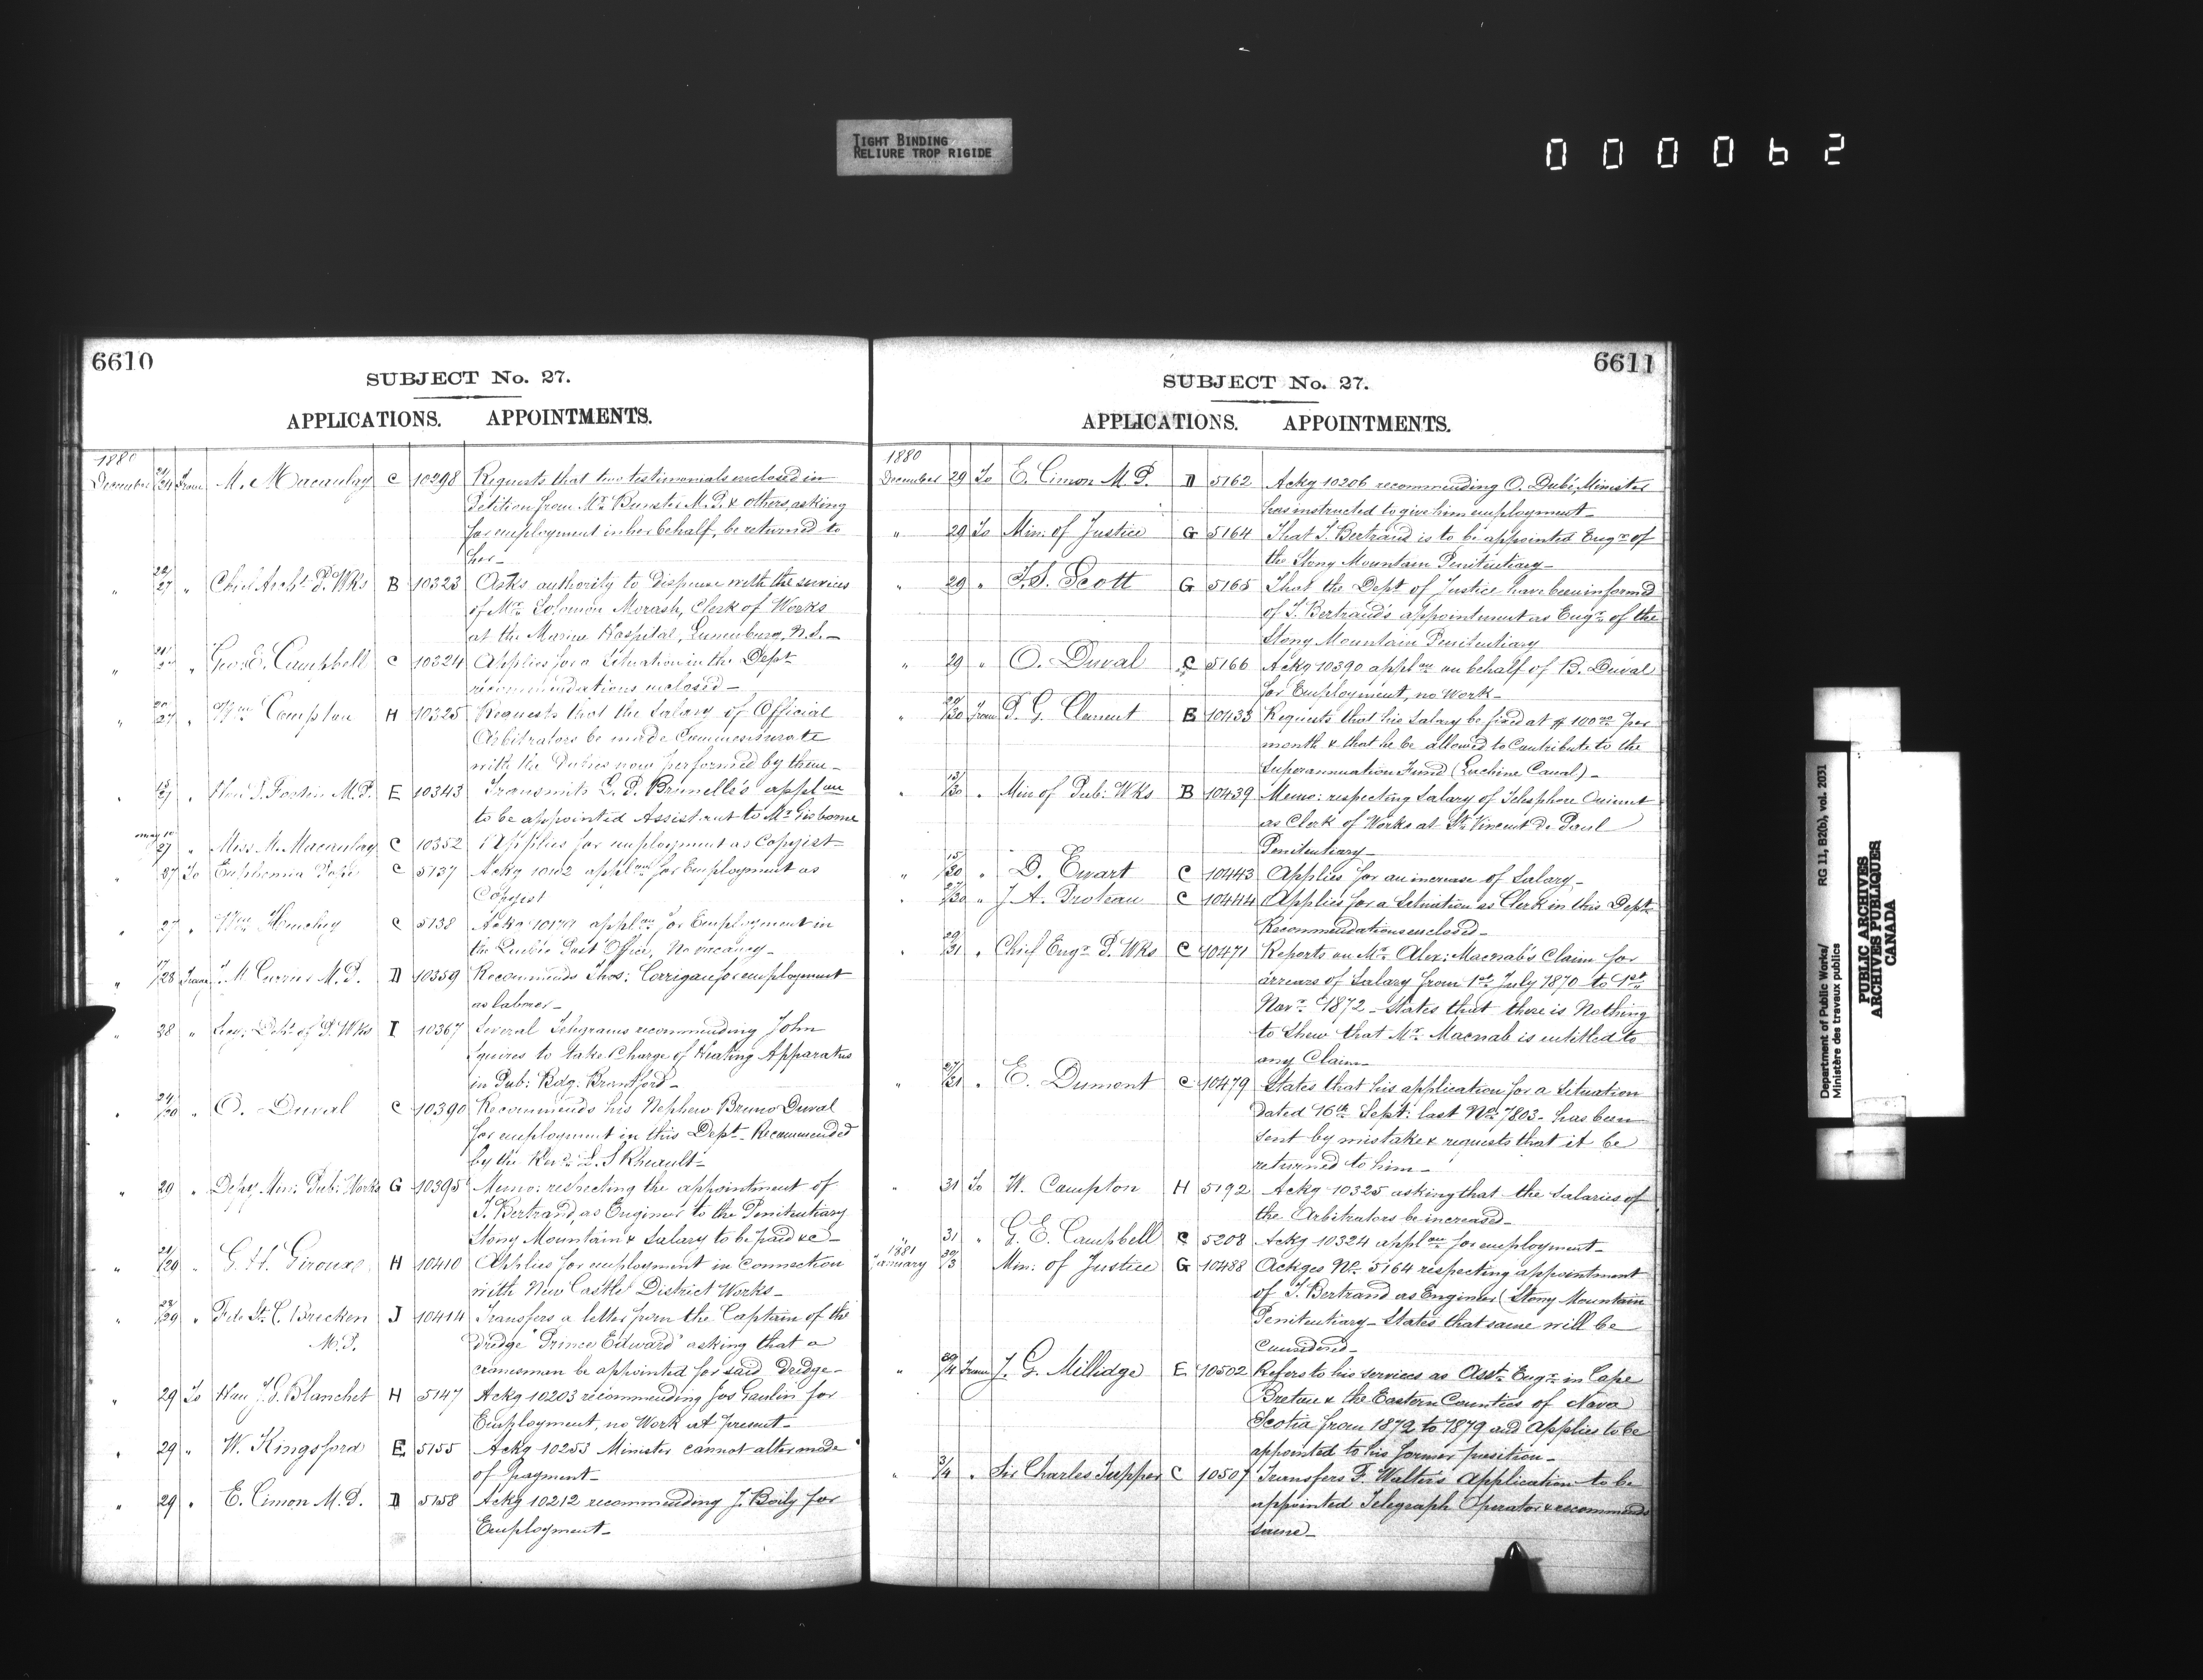 TIGHT BINDING
RELIURE TROP RIGIDE
000062
6610
SUBJECT No. 27.
APPLICATIONS. APPOINTMENTS.
1880
December 24 From M. Macaulay C 10298 Requests that two testimonials enclosed in
Petition from Mr Bunster M.P. & others, asking
for employment in her behalf, be returned to
her_
" 27 " Chief Archt P. Wks B 10323 Asks authority to dispense with the services
of Mr Solomon Morash, Clerk of Works
at the Marine Hospital, Lunenburg, N.S._
" " Geo. E. Campbell C 10324 Applies for a Situation in the Dept
recommendations enclosed_
" 27 " Wm Compton H 10325 Requests that the Salary of Official
Arbitrators be made Commensurate
with the Duties now performed by them_
" 27 " Hon P. Fortin M.P. E 10343 Transmits G. P. Brunelle's applon
to be appointed Assistant to Mr Gisborne
" 27 " Miss M. Macaulay C 10352 Applies for employment as Copyist_
" 27 To Euphemia Pope C 5137 Ackg applon for Employment as
Copyist
" 27 " Wm C 5138 Ackg applon for Employment in
the Quebec Post Office, No vacancy_
" 17/28 From Currier M.P. D 10359 Recommends Thos: Corrigan for employment
as labourer_
" 28 " Secy: Dept of P. Wks I 10367 Several Telegrams recommending John
Squires to take Charge of Heating Apparatus
in Pub: Bdg: Brantford_
" " O. Duval C 10390 Recommends his Nephew Bruno Duval
for employment in this Dept_ Recommended
by the Revd L. S Rheault_
" 29 " Depy Min: Pub: Works G 10395 Memo: respecting the appointment of
T. Bertrand, as Engineer to the Penitentiary
Stony Mountain & Salary to be paid &c_
" 29 " G. H. Giroux H 10410 Applies for employment in connection
with New Castle District Works_
" 29 " F. de St. C. Brecken J 10414 Transfers a letter from the Captain of the
M.P. Dredge "Prince Edward" asking that a
cranesman be appointed for said Dredge_
" 29 To Hon J. G. Blanchet H 5147 Ackg 10203 recommending Jos Gaulin for
Employment, no Work at present_
" 29 " W. Kingsford E 5155 Ackg 10253 Minister cannot alter mode
of payment_
" 29 " E. Cimon M.P. D 5158 Ackg 10212 recommending J. Boily for
Employment_
6611
SUBJECT No. 27.
APPLICATIONS. APPOINTMENTS.
1880
December 29 To E. Cimon M.P. D 5162 Ackg 10206 recommending O. Dubé, Minister
has instructed to give him employment_
" 29 To Min: of Justice G 5164 That T. Bertrand is to be appointed Engr of
the Stony Mountain Penitentiary_
" 29 " T. S. Scott G 5165 That the Dept of Justice have been informed
of T. Bertrand's appointment as Engr of the
Stony Mountain Penitentiary
" 29 " O. Duval C 5166 Ackg 10390 applon on behalf of B. Duval
for Employment, no Work_
" 30 From P. G. Clement E 10433 Requests that his Salary be fixed at $100.00 per
month & that he be allowed to Contribute to the
Superannuation Fund (Lachine Canal)_
" 13/30 " Min of Pub: Wks B 10439 Memo: respecting Salary of Telesphore Ouimet
as Clerk of Works at St. Vincent de Paul
Penitentiary_
" 15/30 " D. Ewart C 10443 Applies for an increase of Salary_
" 27/30 " J A. Proteau C 10444 Applies for a Situation as Clerk in this Dept.
Recommendations enclosed_
" 29/31 " Chief Engr P. Wks C 10471 Reports on Mr Alex: Macnab's Claim for
arrears of Salary from 1st July 1870 to 1st
Novr 1872_States that there is Nothing
to Shew that Mr. Macnab is entitled to
any Claim_
" 27/31 " E. Dumont C 10479 States that his application for a Situation
dated 16th Sept: last No 7803_ has been
sent by mistake & requests that it be
returned to him_
" 31 To W. Compton H 5192 Ackg 10325 asking that the Salaries of
the Arbitrators be increased_
" 31 " G. E. Campbell C 5208 Ackg 10324 applon for employment_
1881
January 30/3 Min: of Justice G 10488 Ackges No 5164 respecting appointment
of T. Bertrand as Engineer (Stony Mountain
Penitentiary_States that same will be
Considered_
" 29/4 From J. G. Millidge E 10502 Refers to his services as Asst. Engr in Cape
Breton & the Eastern Counties of Nova
Scotia from 1872 to 1879 and Applies to be
appointed to his former position_
" 3/4 " Sir Charles Tupper C 10507 Transfers F. Walters Application to be
appointed Telegraph Operator & recommends
same_
Department of Public Works/ RG 11, B2(b), vol. 2031
Ministère des travaux publics
PUBLIC ARCHIVES
ARCHIVES PUBLIQUES
CANADA